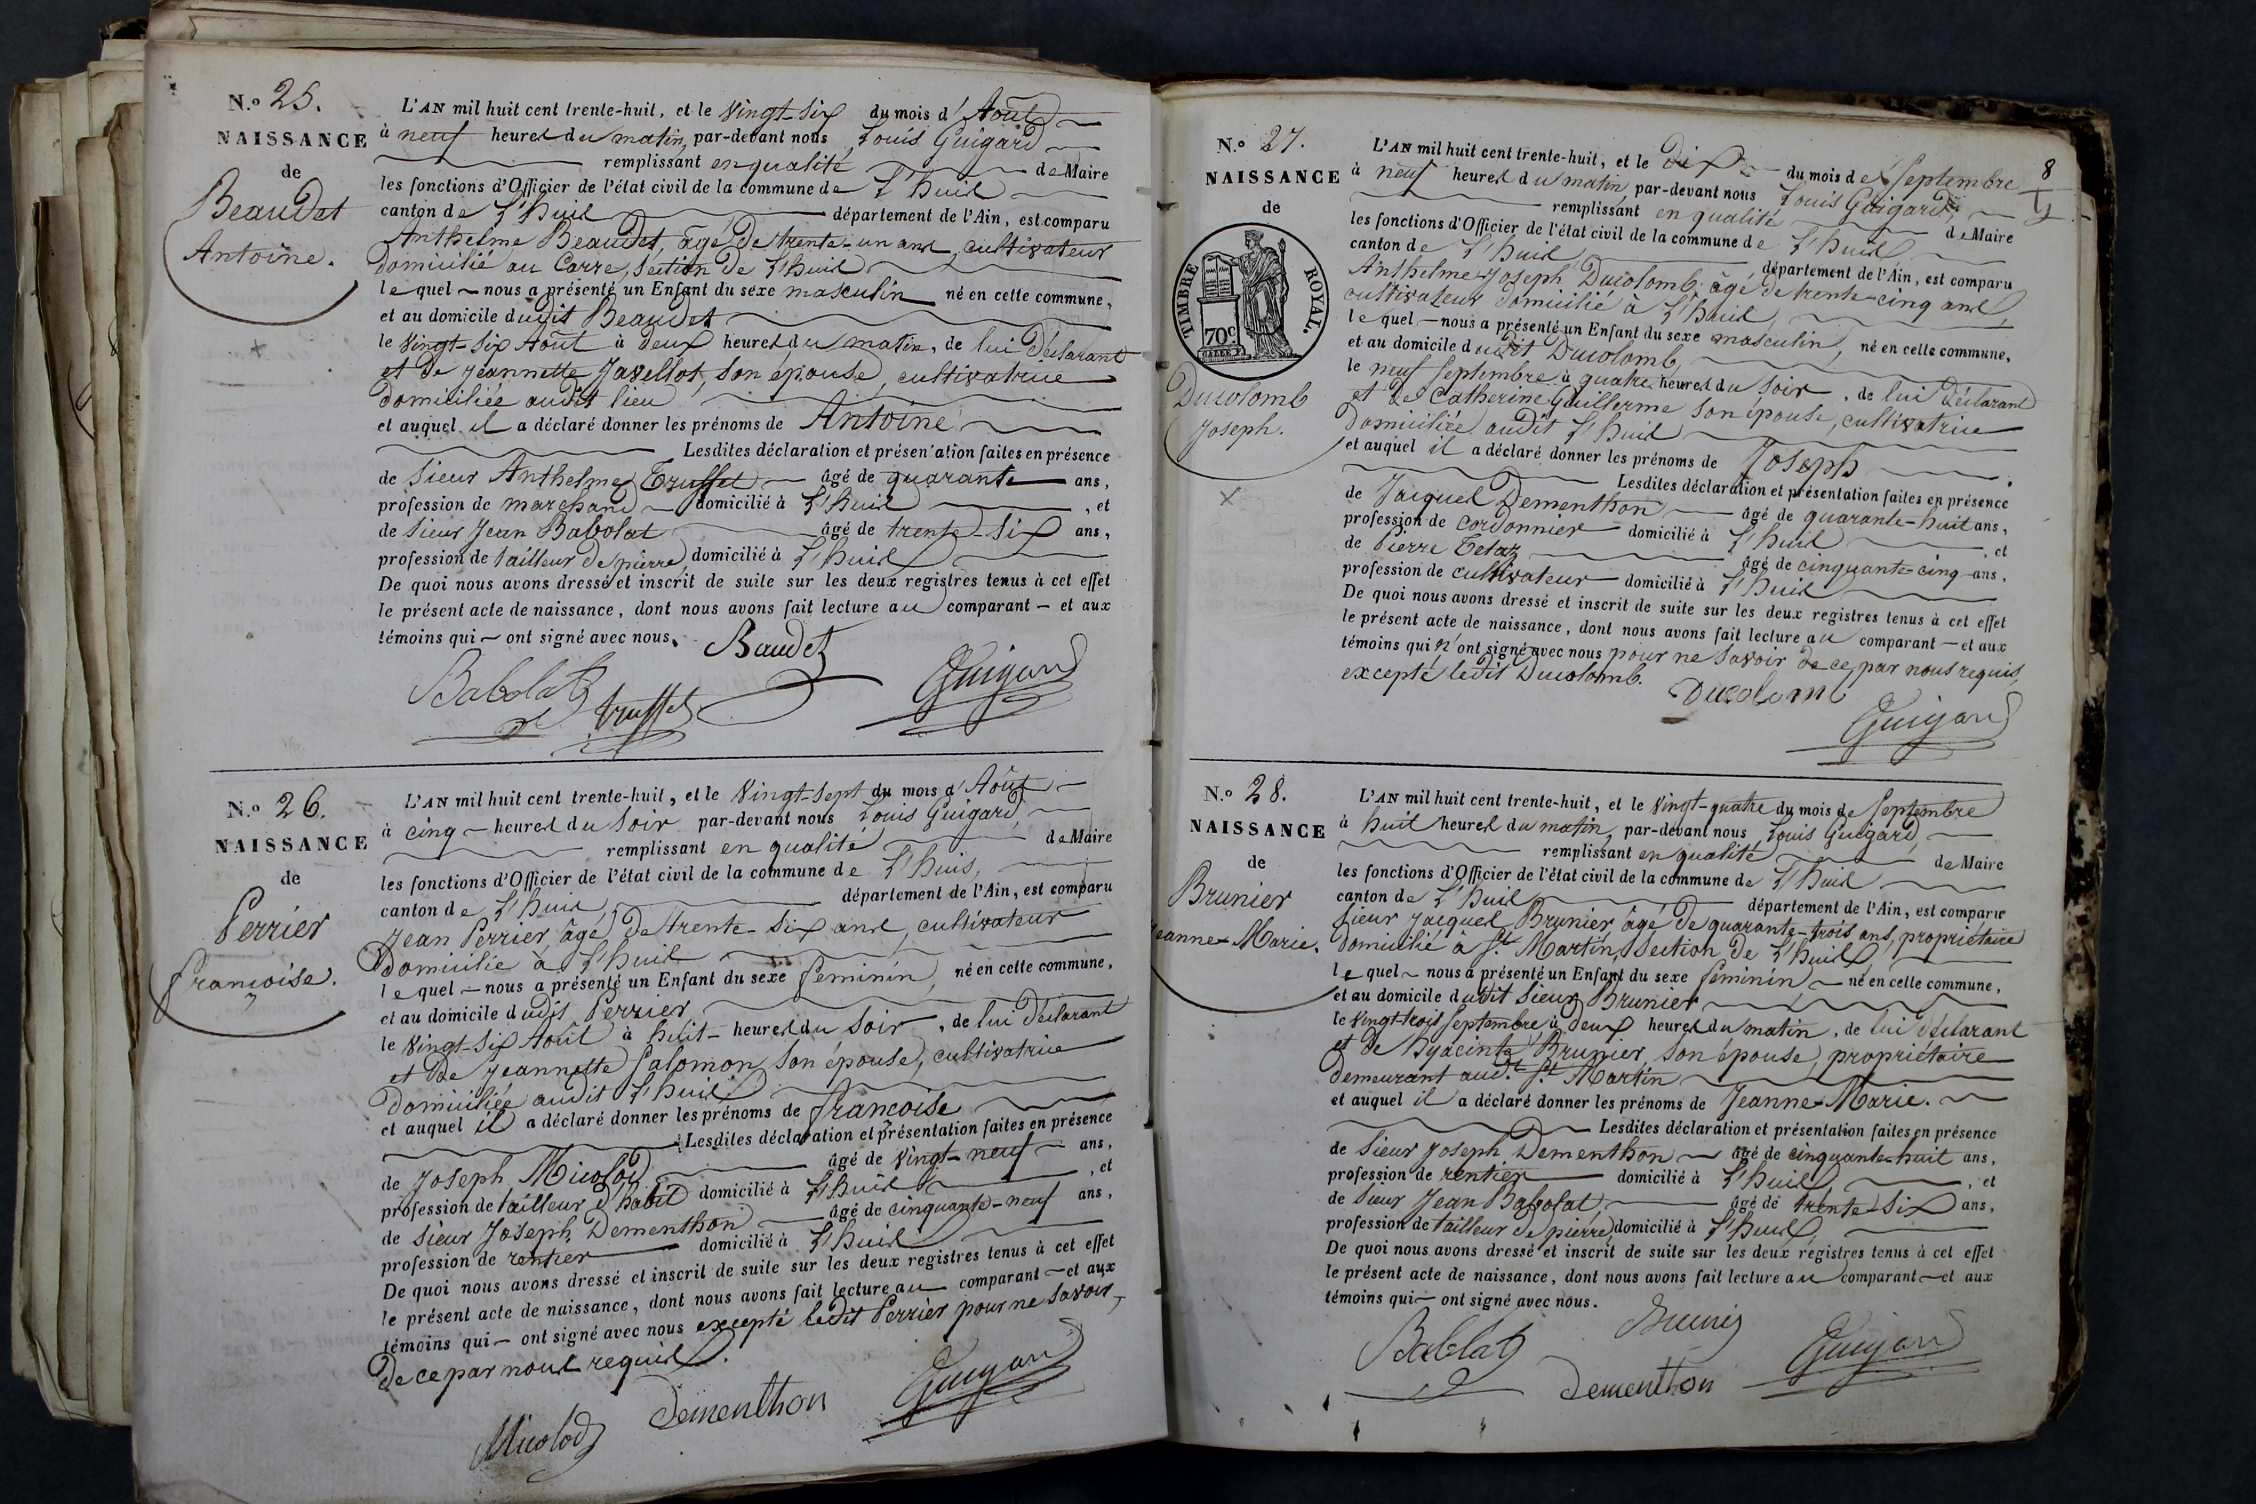 N.º 25.
NAISSANCE
de
Beaudet
Antoine.
L'AN mil huit cent trente-huit, et le vingt-six du mois d'Août
à neuf heures du matin, par-devant nous Louis Guigard
remplissant en qualité de Maire
les fonctions d'Officier de l'état civil de la commune de L'huis
canton de L'huis département de l'Ain, est comparu
Anthelme Beaudet, âgé de trente-un ans, cultivateur
domicilié au Carre, section de L'huis
lequel nous a présenté un Enfant du sexe masculin né en cette commune,
et au domicile dudit Beaudet
le vingt-six Août à deux heures du matin, de lui déclarant
et de Jeannette Javellot, son épouse, cultivatrice
domiciliée audit lieu
et auquel il a déclaré donner les prénoms de Antoine
Lesdites déclaration et présentation faites en présence
de sieur Anthelme Truffet âgé de quarante ans,
profession de marchand domicilié à L'huis, et
de sieur Jean Babolat âgé de trente-six ans,
profession de tailleur de pierre, domicilié à L'huis
De quoi nous avons dressé et inscrit de suite sur les deux registres tenus à cet effet
le présent acte de naissance, dont nous avons fait lecture au comparant et aux
témoins qui ont signé avec nous.
Baudet
Babolat
truffet
Guigard
N.º 26.
NAISSANCE
de
Perrier
françoise.
L'AN mil huit cent trente-huit, et le vingt-sept du mois d'Août
à cinq heures du soir par-devant nous Louis Guigard,
remplissant en qualité de Maire
les fonctions d'Officier de l'état civil de la commune de L'huis,
canton de L'huis département de l'Ain, est comparu
Jean Perrier, âgé de trente-six ans, cultivateur
domicilié à L'huis
lequel nous a présenté un Enfant du sexe feminin, né en cette commune,
et au domicile dudit Perrier
le vingt-six Août à huit heures du soir, de lui déclarant
et de Jeannette Salomon, son épouse, cultivatrice
domiciliée audit L'huis
et auquel il a déclaré donner les prénoms de françoise
Lesdites déclaration et présentation faites en présence
de Joseph Micolod âgé de vingt-neuf ans,
profession de tailleur d'habit domicilié à L'huis, et
de sieur Joseph Dementhon âgé de cinquante-neuf ans,
profession de rentier domicilié à L'huis
De quoi nous avons dressé et inscrit de suite sur les deux registres tenus à cet effet
le présent acte de naissance, dont nous avons fait lecture au comparant et aux
témoins qui ont signé avec nous excepté ledit Perrier pour ne savoir,
de ce par nous requis.
Micolod
Dementhon
Guigard
8
N.º 27.
NAISSANCE
de
TIMBRE ROYAL.
70 c.
Ducolomb
Joseph.
L'AN mil huit cent trente-huit, et le dix du mois de Septembre
à neuf heures du matin par-devant nous Louis Guigard,
remplissant en qualité de Maire
les fonctions d'Officier de l'état civil de la commune de L'huis
canton de L'huis département de l'Ain, est comparu
Anthelme-Joseph Ducolomb âgé de trente-cinq ans,
cultivateur domicilié à L'huis
lequel nous a présenté un Enfant du sexe masculin, né en cette commune,
et au domicile dudit Ducolomb,
le neuf Septembre à quatre heures du soir, de lui déclarant
et de Catherine Guillerme son épouse, cultivatrice
domiciliée audit L'huis
et auquel il a déclaré donner les prénoms de Joseph.
Lesdites déclaration et présentation faites en présence
de Jacques Dementhon âgé de quarante-huit ans,
profession de cordonnier domicilié à L'huis, et
de Pierre Tetaz âgé de cinquante-cinq ans,
profession de cultivateur domicilié à L'huis
De quoi nous avons dressé et inscrit de suite sur les deux registres tenus à cet effet
le présent acte de naissance, dont nous avons fait lecture au comparant et aux
témoins qui n'ont signé avec nous pour ne savoir de ce par nous requis,
excepté ledit Ducolomb.
Ducolomb
Guigard
N.º 28.
NAISSANCE
de
Brunier
Jeanne-Marie.
L'AN mil huit cent trente-huit, et le vingt-quatre du mois de Septembre
à huit heures du matin, par-devant nous Louis Guigard,
remplissant en qualité de Maire
les fonctions d'Officier de l'état civil de la commune de L'huis
canton de L'huis département de l'Ain, est comparu
Sieur Jacques Brunier, âgé de quarante-trois ans, propriétaire
domicilié à St. Martin, section de L'huis,
lequel nous a présenté un Enfant du sexe feminin né en cette commune,
et au domicile dudit sieur Brunier
le vingt-trois Septembre à deux heures du matin, de lui déclarant
et de hyacinte Brunier, son épouse, propriétaire
demeurant audt. St. Martin
et auquel il a déclaré donner les prénoms de Jeanne-Marie.
Lesdites déclaration et présentation faites en présence
de Sieur Joseph Dementhon âgé de cinquante-huit ans,
profession de rentier domicilié à L'huis, et
de Sieur Jean Babolat, âgé de trente-six ans,
profession de tailleur de pierre, domicilié à L'huis,
De quoi nous avons dressé et inscrit de suite sur les deux registres tenus à cet effet
le présent acte de naissance, dont nous avons fait lecture au comparant et aux
témoins qui ont signé avec nous.
Bablat
Dementhon
Guigard